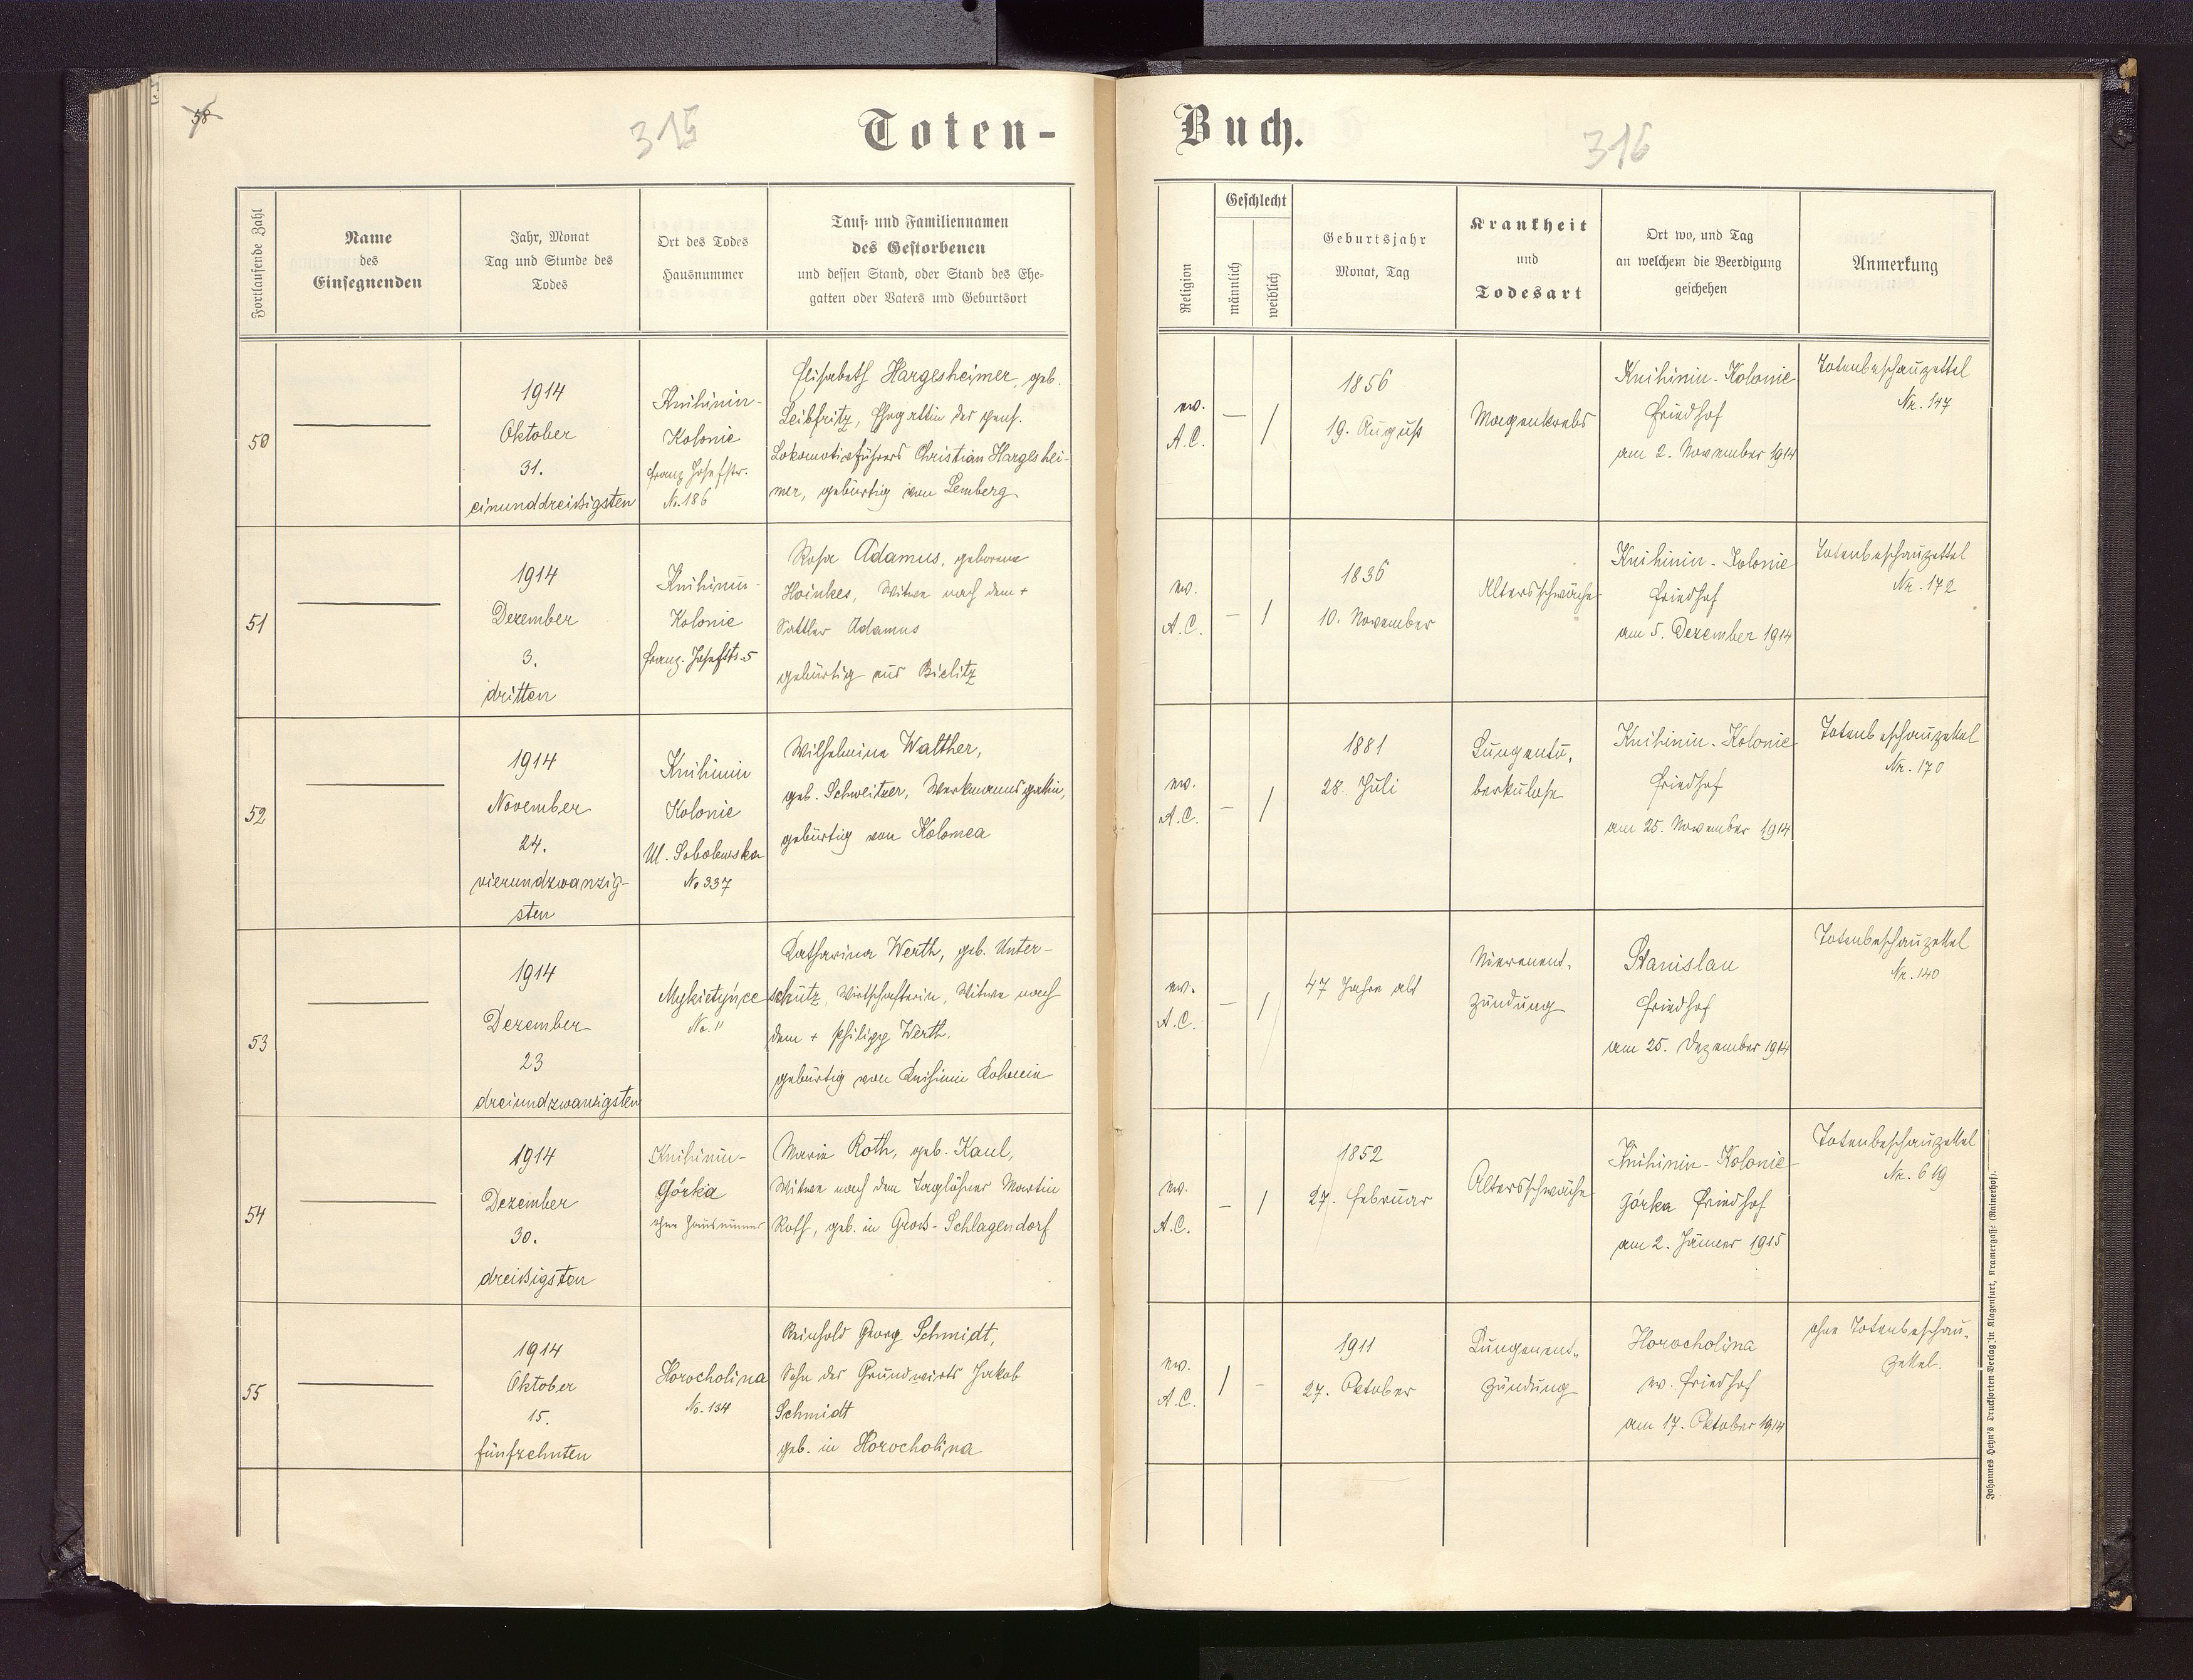 58
315
Toten-
Buch.
316
Fortlaufende Zahl
Name
des
Einsegnenden
Jahr, Monat
Tag und Stunde des
Todes
Ort des Todes
Hausnummer
Tauf- und Familiennamen
des Gestorbenen
und dessen Stand, oder Stand des Ehe-
gatten oder Vaters und Geburtsort
Religion
Geschlecht
männlich
weiblich
Geburtsjahr
Monat, Tag
Krankheit
und
Todesart
Ort wo, und Tag
an welchem die Beerdigung
geschehen
Anmerkung
50
1914
Oktober
31.
einunddreißigsten
Knihinin-
Kolonie
Franz Josefstr.
No. 186
Elisabeth Hargesheimer, geb.
Leibfritz, Ehegattin des pens.
Lokomotivführers Christian Hargeshei-
mer, gebürtig von Lemberg
ev.
A.C.
–
/
1856
19. August
Magenkrebs
Knihinin-Kolonie
Friedhof
am 2. November 1914
Totenbeschauzettel
Nr. 147
51
1914
Dezember
3.
dritten
Knihinin-
Kolonie
Franz-Josefstr. 5
Rosa Adamus, geborene
Hoinkes, Witwe nach dem +
Sattler Adamus
gebürtig aus Bielitz
ev.
A.C.
–
/
1836
10. November
Altersschwäche
Knihinin-Kolonie
Friedhof
am 5. Dezember 1914
Totenbeschauzettel
Nr. 172
52
1914
November
24.
vierundzwanzig-
sten
Knihinin
Kolonie
Ul. Sobolewska
No 337
Wilhelmine Walther,
geb. Schweitzer, Werkmannsgattin,
gebürtig von Kolomea
ev.
A.C.
–
/
1881
28. Juli
Lungentu-
berkulose
Knihinin-Kolonie
Friedhof
am 25. November 1914
Totenbeschauzettel
Nr. 170
53
1914
Dezember
23
dreiundzwanzigsten
Mykietyńce
No. 11
Katharina Werth, geb. Unter-
schütz, Wirtschafterin, Witwe nach
dem + Philipp Werth.
gebürtig von Knihinin Kolonie
ev.
A.C.
–
/
47 Jahre alt
Nierenent-
zündung
Stanislau
Friedhof
am 25. Dezember 1914
Totenbeschauzettel
Nr. 140
54
1914
Dezember
30.
dreißigsten
Knihinin-
Górka
ohne Hausnummer
Marie Roth, geb. Kaul,
Witwe nach dem Taglöhner Martin
Roth, geb. in Gross-Schlagendorf
ev.
A.C.
–
/
1852
27. Februar
Altersschwäche
Knihinin-Kolonie-
górka Friedhof
am 2. Jänner 1915
Totenbeschauzettel
Nr. 619
55
1914
Oktober
15.
fünfzehnten
Horocholina
No. 134
Reinhold Georg Schmidt,
Sohn des Grundwirts Jakob
Schmidt
geb. in Horocholina
ev.
A.C.
/
–
1911
27. Oktober
Lungenent-
zündung
Horocholina
ev. Friedhof
am 17. Oktober 1914
ohne Totenbeschau-
zettel.
Johannes Heyn's Drucksorten-Verlag in Klagenfurt, Kramergasse (Rainerhof).